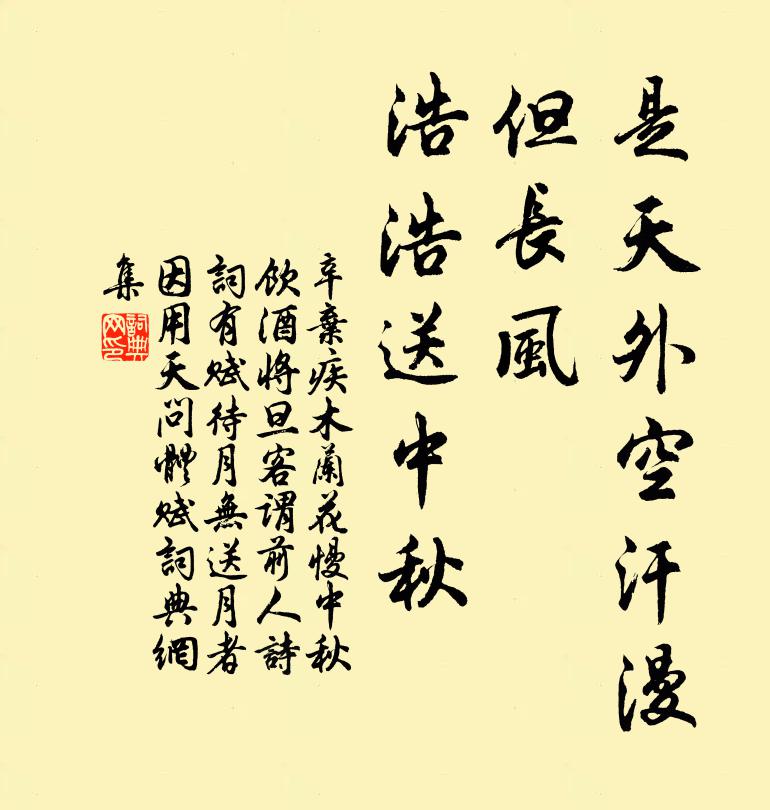 是天外空汗漫
但長風
浩浩送中秋
辛棄疾木蘭花慢中秋
飲酒將旦客謂前人詩
詞有賦待月無送月者
因用天問體賦詞典網
集
詞典
网印